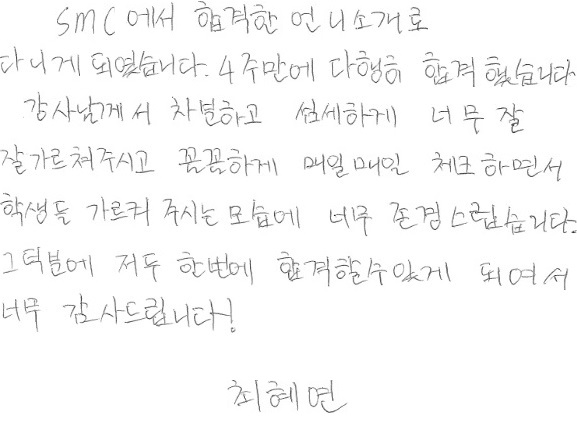 SMC에서 합격한 언니소개로
다니게 되었습니다. 4주만에 다행히 합격했습니다.
강사님께서 차분하고 섬세하게 너무 잘
잘가르쳐주시고 꼼꼼하게 매일매일 체크하면서
학생들 가르켜 주시는 모습에 너무 존경스럽습니다.
그덕분에 저두 한번에 합격할수있게 되여서
너무 감사드립니다!
최혜연